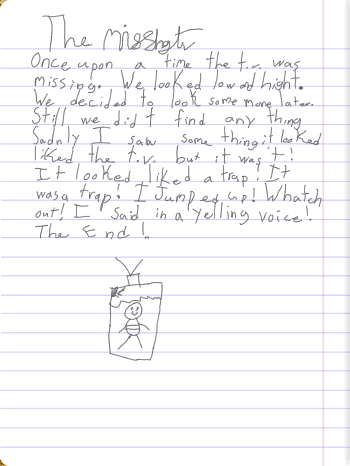 The
Once upon a time the t.v. was
missing. We looked low and hight.
We decided to look some more later.
Still we did't find any thing
Sadnly I saw some thing it looked
liked the t.v. but it was't!
It looked liked a trap! It
was a trap! I Jumped up! Whatch
out! I said in a yelling voice!
The End!